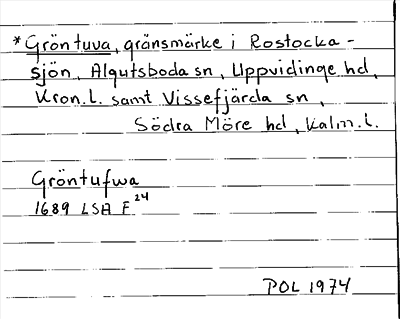 *Gröntuva, gränsmärke i Rostocka-
sjön, Algutsboda sn, Uppvidinge hd,
Kron.l. samt Vissefjärda sn,
Södra Möre hd, Kalm.l.
Gröntufwa
1689 LSA F 24
POL 1974